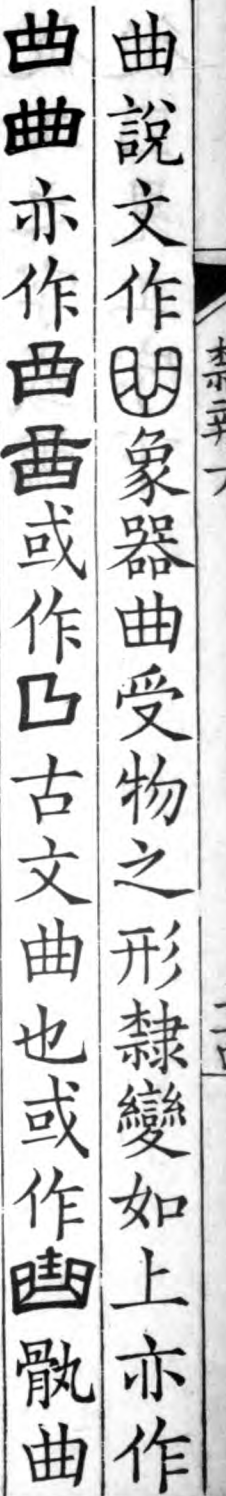 曲說文作象器曲受物之形隸變如上亦作
曲亦作或作古文曲也或作骩曲